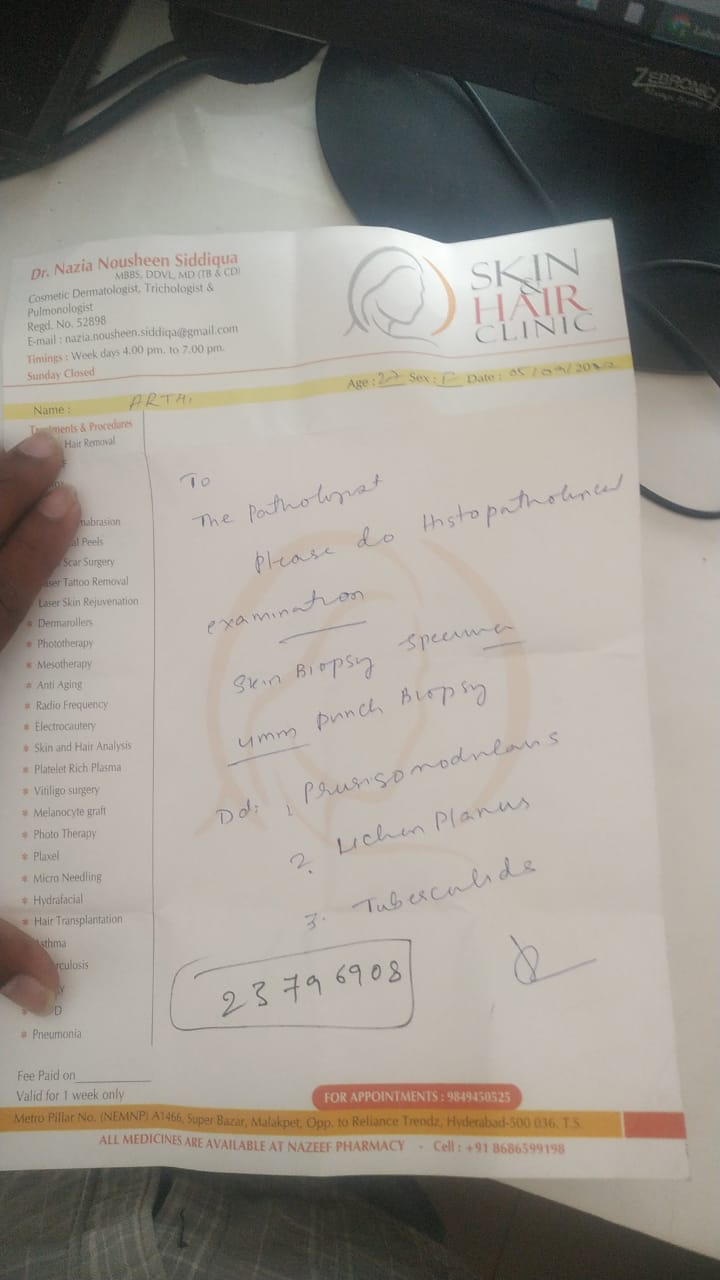 Dr. Nazia Nousheen Siddiqua
MBBS, DDVL, MD (TB & CD)
Cosmetic Dermatologist, Trichologist &
Pulmonologist
Regd. No. 52898
E-mail : nazia.nousheen.siddiqa@gmail.com
Timings : Week days 4.00 pm. to 7.00 pm.
Sunday Closed
SKIN
&
HAIR
CLINIC
ZEBRONICS
Name : ARTHI
Age : 27 Sex : F Date : 05/09/20
Treatments & Procedures
Hair Removal
Scar Surgery
Tattoo Removal
Laser Skin Rejuvenation
* Dermarollers
* Phototherapy
* Mesotherapy
* Anti Aging
* Radio Frequency
* Electrocautery
* Skin and Hair Analysis
* Platelet Rich Plasma
* Vitiligo surgery
* Melanocyte graft
* Photo Therapy
* Plaxel
* Micro Needling
* Hydrafacial
* Hair Transplantation
* Pneumonia
To
The Pathologist
Please do Histopathological
examination
Skin Biopsy specimen
4mm punch Biopsy
Dd: 1. Prurigo nodularis
2. Lichen Planus
3. Tuberculids
23796908
Fee Paid on
Valid for 1 week only
FOR APPOINTMENTS : 9849450525
Metro Pillar No. (NEMNP) A1466, Super Bazar, Malakpet, Opp. to Reliance Trendz, Hyderabad-500 036. T.S.
ALL MEDICINES ARE AVAILABLE AT NAZEEF PHARMACY - Cell : +91 8686599198